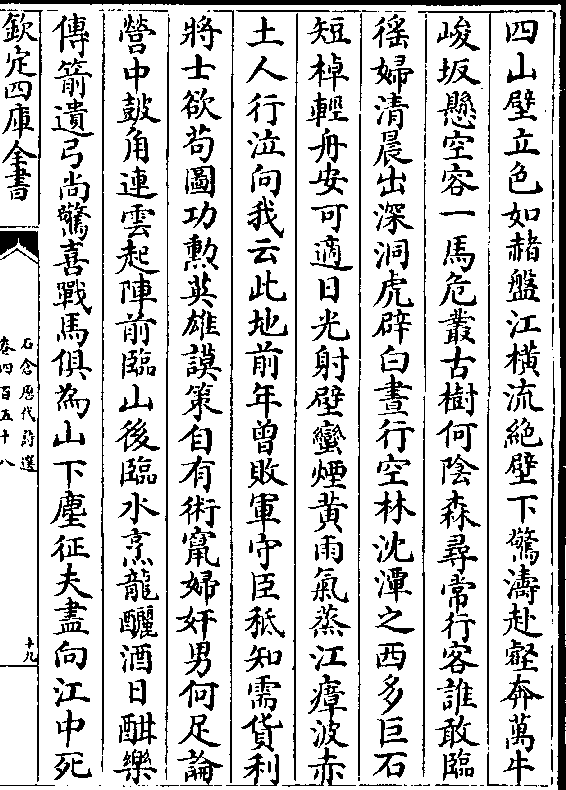 四山壁立色如赭盤江橫流絶壁下驚濤赴壑奔萬牛
峻坂懸空容一馬危叢古樹何陰森尋常行客誰敢臨
徭婦清晨出深洞虎辟白晝行空林沈潭之西多巨石
短棹輕舟安可適日光射壁蠻煙黄雨氣蒸江瘴波赤
土人行泣向我云此地前年曾敗軍守臣秪知需貨利
將士欲苟圖功勲英雄謨策自有術竄婦奸男何足論
營中鼓角連雲起陣前臨山後臨水烹龍釃酒日酣樂
傳箭遺弓尚驚喜戰馬俱為山下塵征夫盡向江中死
欽定四庫全書
石倉歴代詩選
卷四百五十八
十九